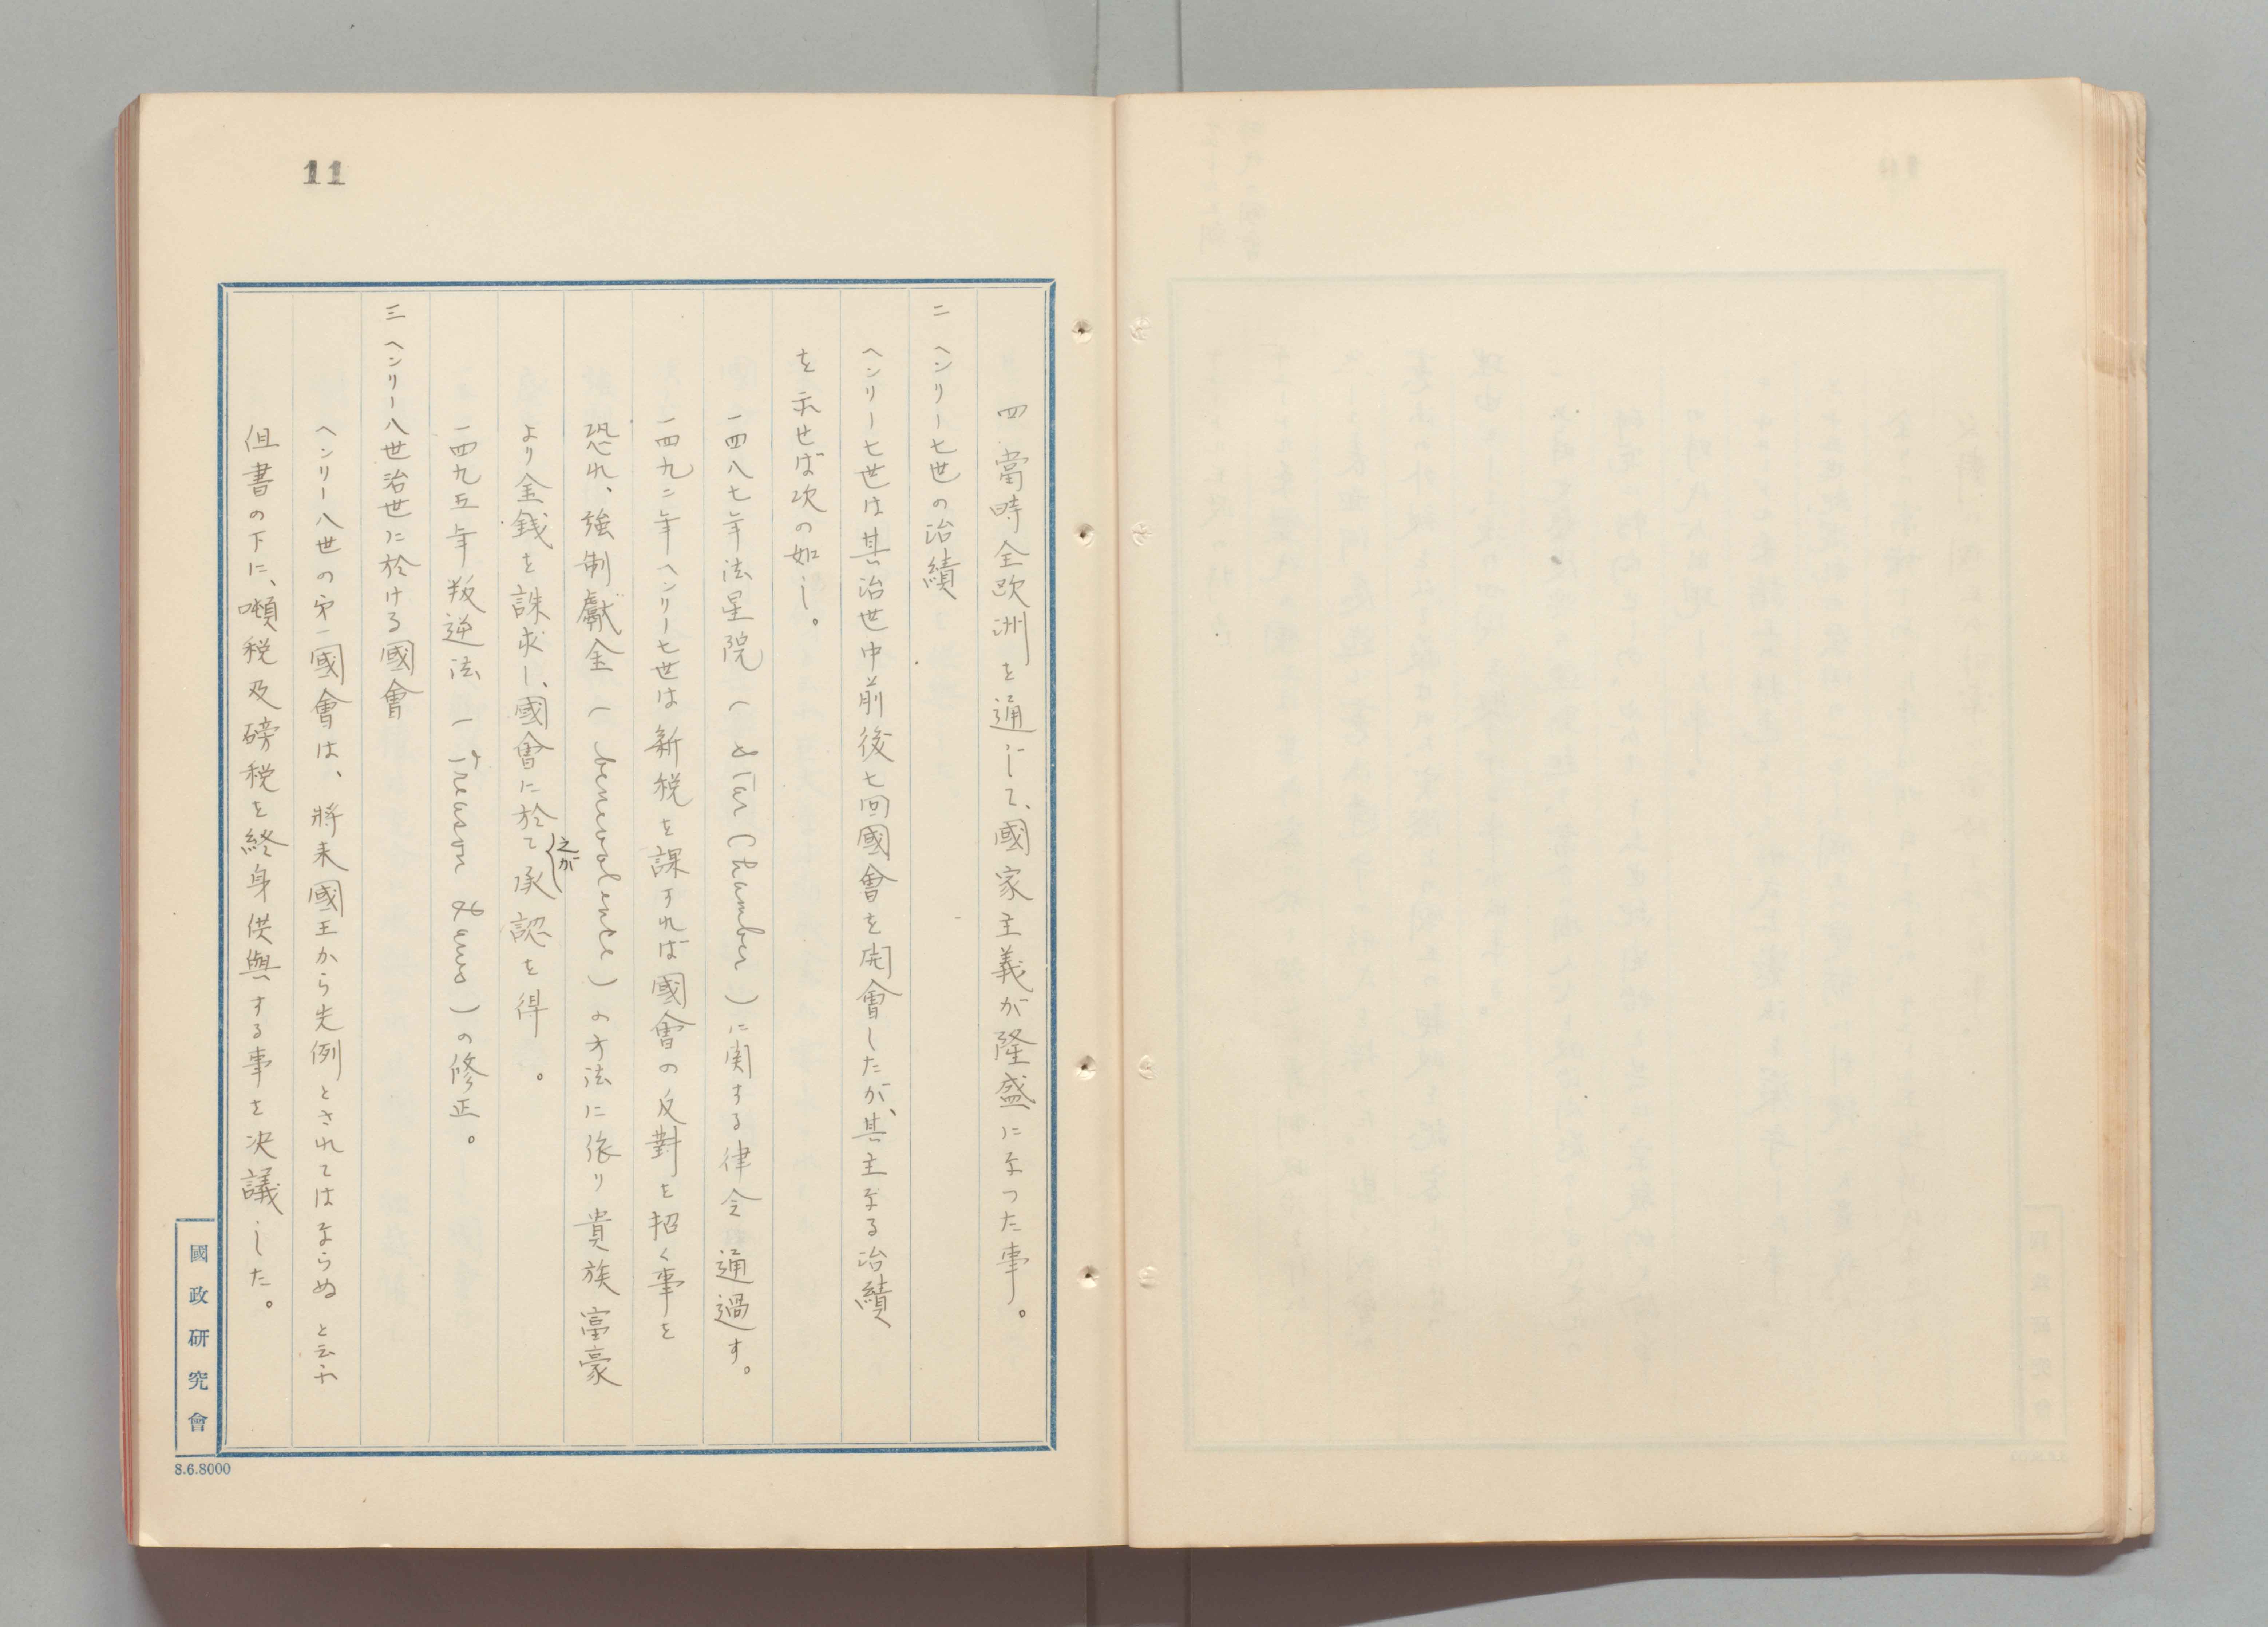 11
四 當時全欧洲を通じて、國家主義が隆盛になった事。
二 ヘンリー七世の治績
ヘンリー七世は其治世中前後七回國會を開會したが、其主なる治績
を示せば次の如し。
一四八七年法星院(Star Chamber)に関する律令通過す。
一四九二年ヘンリー七世は新税を課すれば國會の反對を招く事を
恐れ、強制獻金(benevolence)の方法に依り貴族富豪
より金銭を誅求し、國會に於て之が承認を得。
一四九五年叛逆法(Treason Laws)の修正。
三 ヘンリー八世治世に於ける國會
ヘンリー八世の第一國會は、將来國王から先例とされてはならぬと云ふ
但書の下に、噸税及磅税を終身供與する事を決議した。
國政研究會
8.6.8000